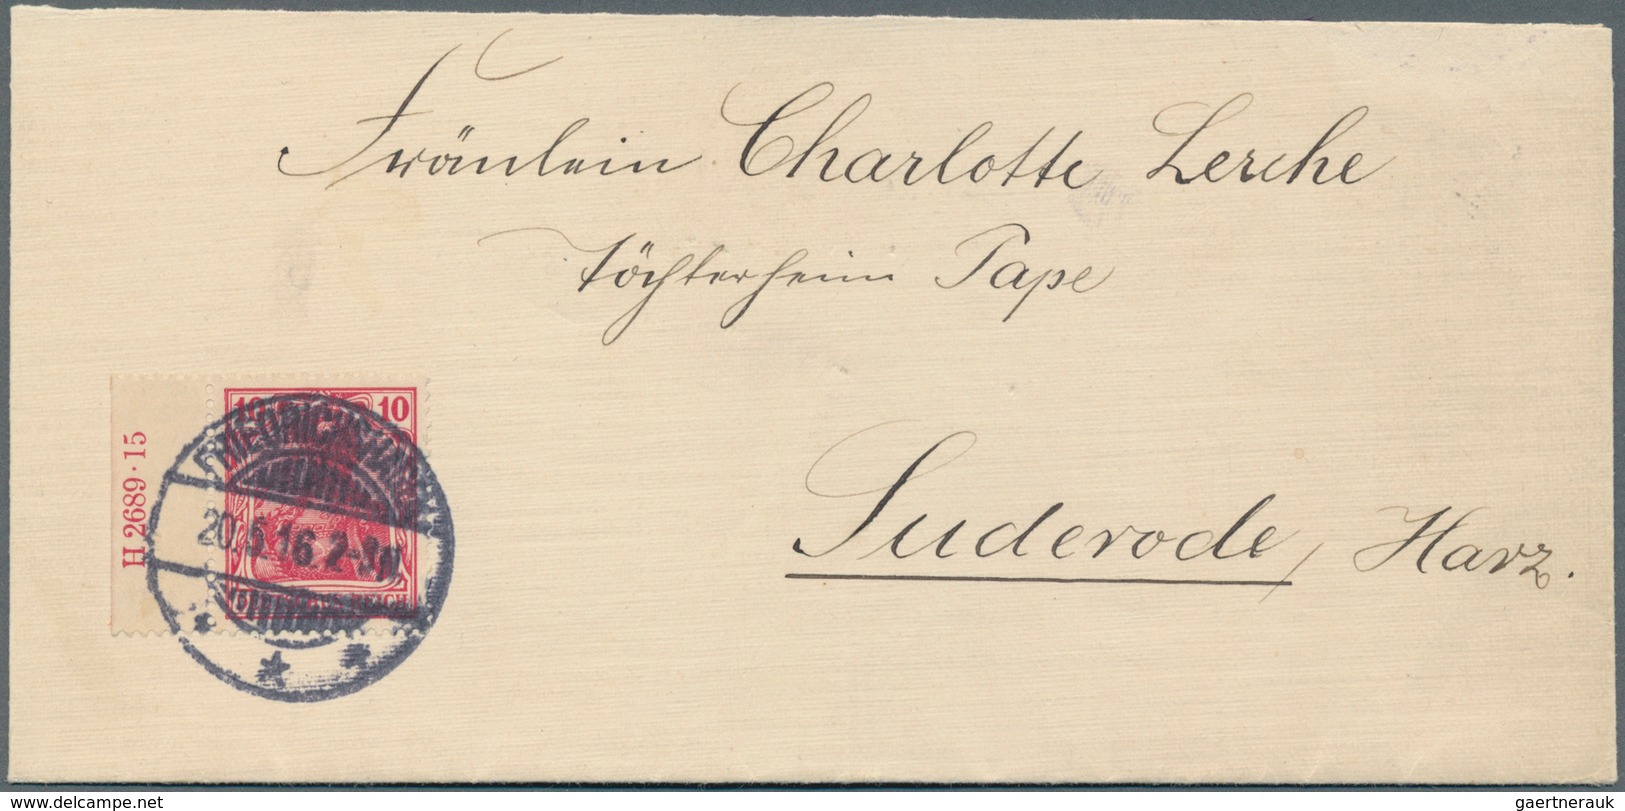 Fräulein Charlotte Lerche
Töchterheim Pape
Suderode, Harz.
H 2689.15
10 10
20.5.16.2-3N
DEUTSCHES REICH
www.delcampe.net
gaertnerauk